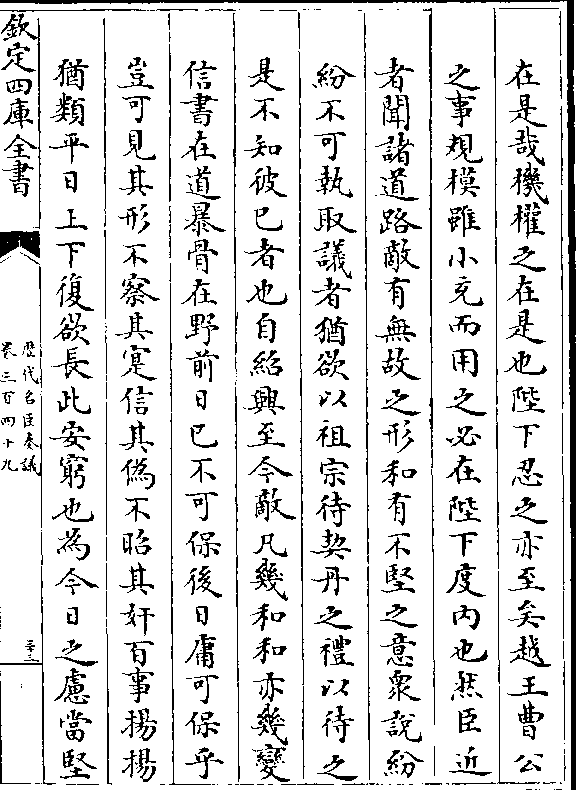 在是哉機權之在是也陛下忍之亦至矣越王曹公
之事規模雖小充而用之必在陛下度内也然臣近
者聞諸道路敵有無故之形和有不堅之意衆說紛
紛不可執取議者猶欲以祖宗待契丹之禮以待之
是不知彼已者也自紹興至今敵凡幾和和亦幾變
信書在道暴骨在野前日已不可保後日庸可保乎
豈可見其形不察其寔信其偽不昭其奸百事揚揚
猶類平日上下復欲長此安窮也為今日之慮當堅
欽定四庫全書
歷代名臣奏議
卷三百四十九
二十三